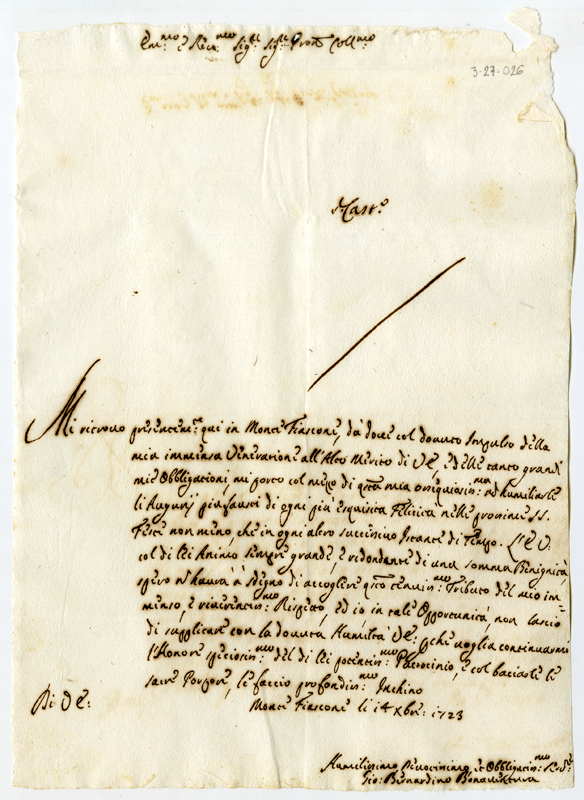 Em:mo e Rev:mo Sig:r Sig:r Pron Coll:mo
3-27-026
Mi ritrovo presentem:te qui in Monte Fiasconi, da dove col dovuto Impulso della
mia immensa Venerazione all'Alto Merito di VE, e delle tante grandi
mie Obbligazioni mi porto col mezo di questa mia ossequiosis:ma ad humiliarle
li Augurij piu fausti di ogni più esquisita Felicità nelle prossime SS.
Feste non meno, che in ogni altro successivo Istante di Tempo. L'E V.
col di lei Animo sempre grande, e ridondante di una somma Benignità,
spero n haurà à sdegno di accogliere questo tenuis:mo Tributo del mio im=
menso, e reverentis:mo Rispetto, ed io in tale Opportunità, non lascio
di supplicare con la dovuta Humiltà VE: pche voglia continuarmi
l'Honore speciosis:mo del di lei potentis:mo Patrocinio, e col baciarle le
sacre Porpore, le faccio profondis:mo Inchino
Di VE:
Monte Fiasconi li 14 Xbre: 1723
Humilissimo Devotissimo et Obbligatis:mo
Gio: Bernardino Bonaventura